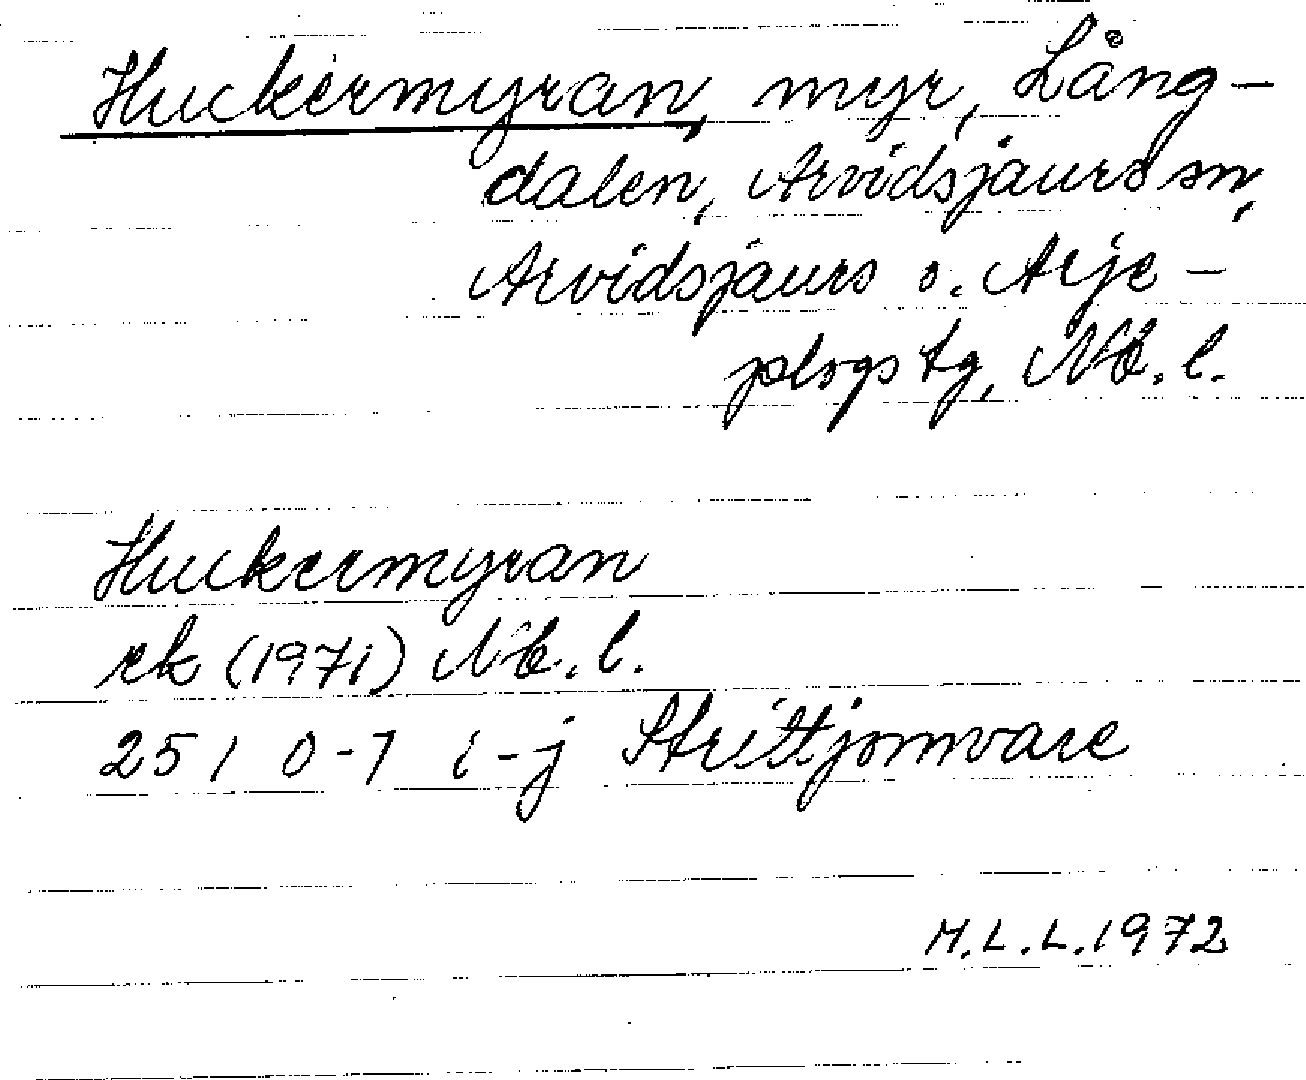 Huckermyran, myr, Lång-
dalen, Arvidsjaurs sn,
Arvidsjaurs o. Arje-
plogs tg, Nb. l.
Huckermyran
ek (1971) Nb. l.
25 I 0-1 i-j Strittjomvare
M.L.L. 1972